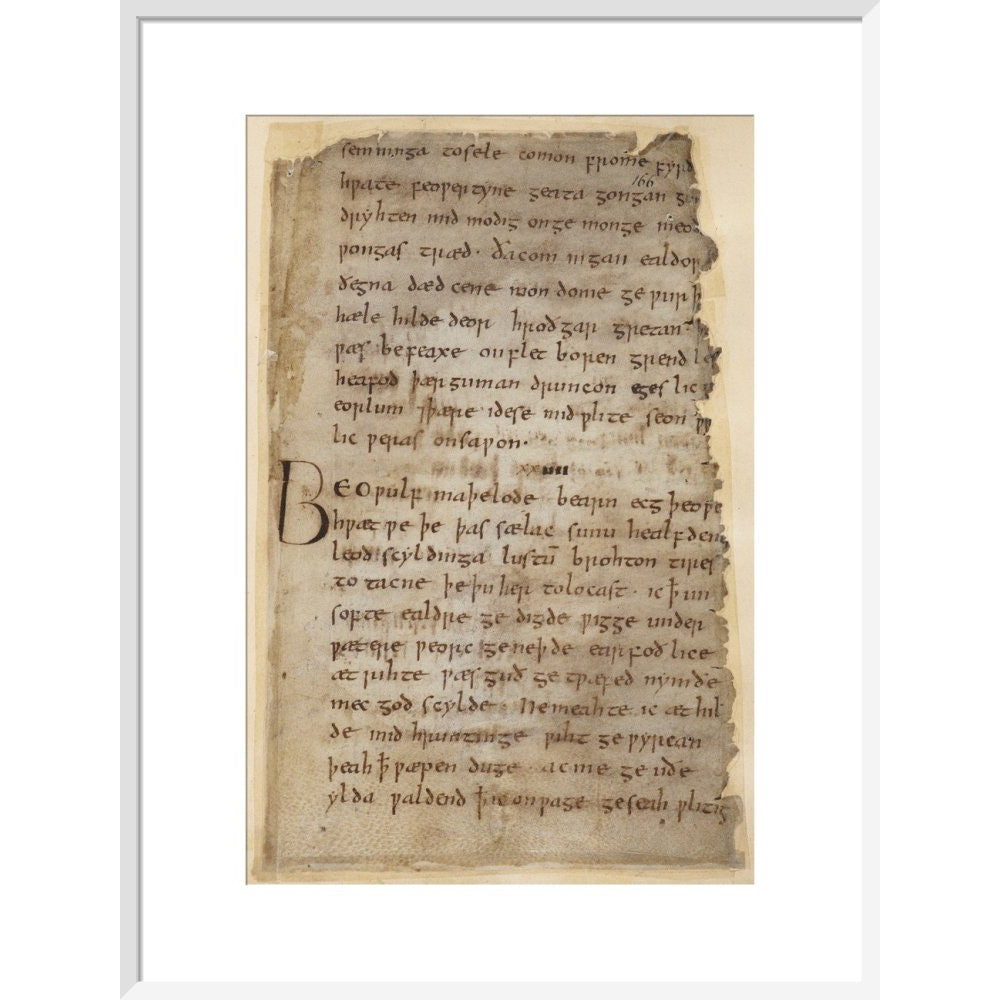 semninga tosele comon frome fyrd
166
hƿate feoƿertyne geata gongan gu
dryhten mid modig onge monge meodo
ƿongas træd · ða com in gan ealdor
ðegna dæd cene mon dome ge ƿurþ
hæle hilde deor hroðgar gretan ·
ƿæs be feaxe on flet boren grend les
heafod þær guman druncon eges lic
eorlum ⁊ þære idese mid ƿlite seon
lic ƿeras on saƿon ·
xxiiii
BEOǷULF maþelode bearn ecg þeoƿes
hƿæt ƿe þe þas sælac sunu healfden
leod scyldinga lustū brohton tires
to tacne þe þu her to locast · ic ꝥ un
softe ealdre ge digde ƿigge under
ƿætere ƿeorc ge neþde earfoð lice
æt rihte ƿæs guð ge tƿæfed nymðe
mec god scylde · Ne meahte ic æt hil
de mid hruntinge ƿiht ge ƿyrcan
þeah ꝥ ƿæpen duge · ac me ge uðe
ylda ƿaldend ꝥ ic on ƿage ge seah ƿlitig